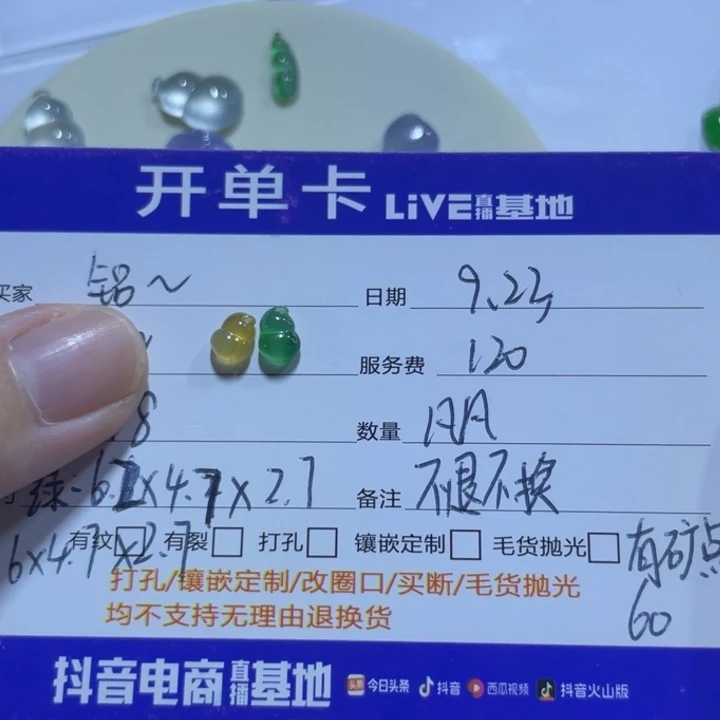 开单卡 LiVE直播基地
买家 铝~ 日期 9.23
服务费 120
8 数量 AA
球:6.2×4.7×2.7 备注 不退不换
有纹 有裂 打孔 镶嵌定制 毛货抛光 有矿点
6×4.7×2.7
60
打孔/镶嵌定制/改圈口/买断/毛货抛光
均不支持无理由退换货
抖音电商直播基地 头条 今日头条 抖音 西瓜视频 抖音火山版